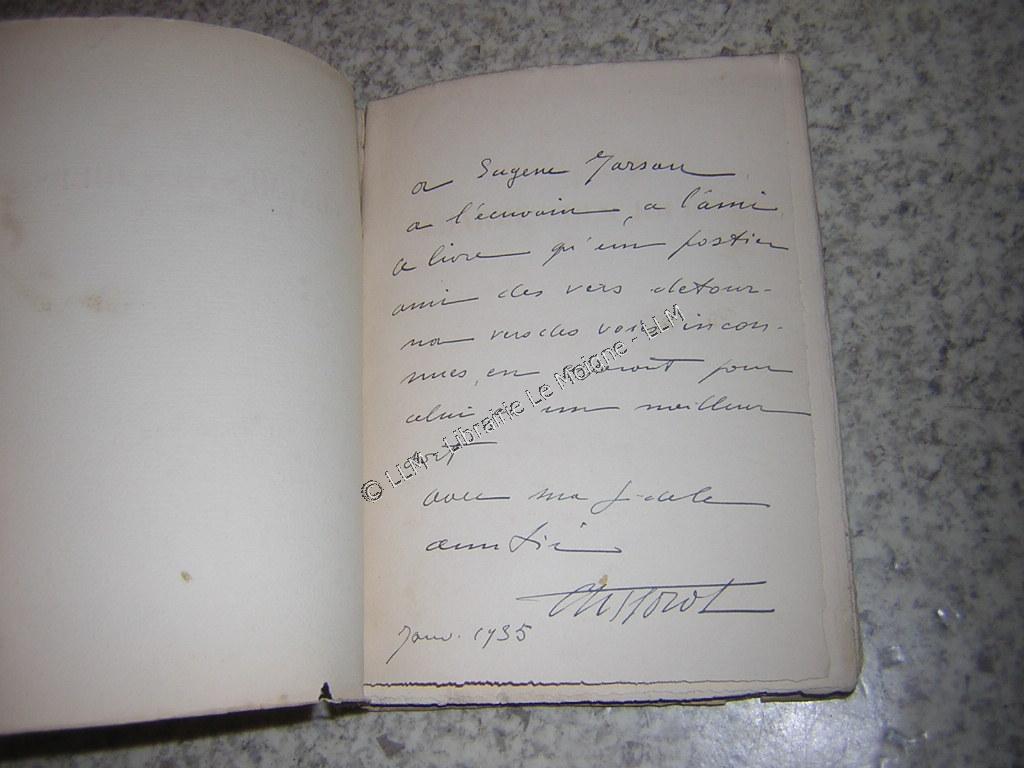 a Eugene Marsan
a l'écrivain, a l'ami
ce livre qu'un postier
ami des vers detour-
na vers des voies incon-
nues, en
pour
celui d'un meilleur
avec ma fidele
amitié
Janv. 1935
© LLM - Librairie Le Moigne - LLM